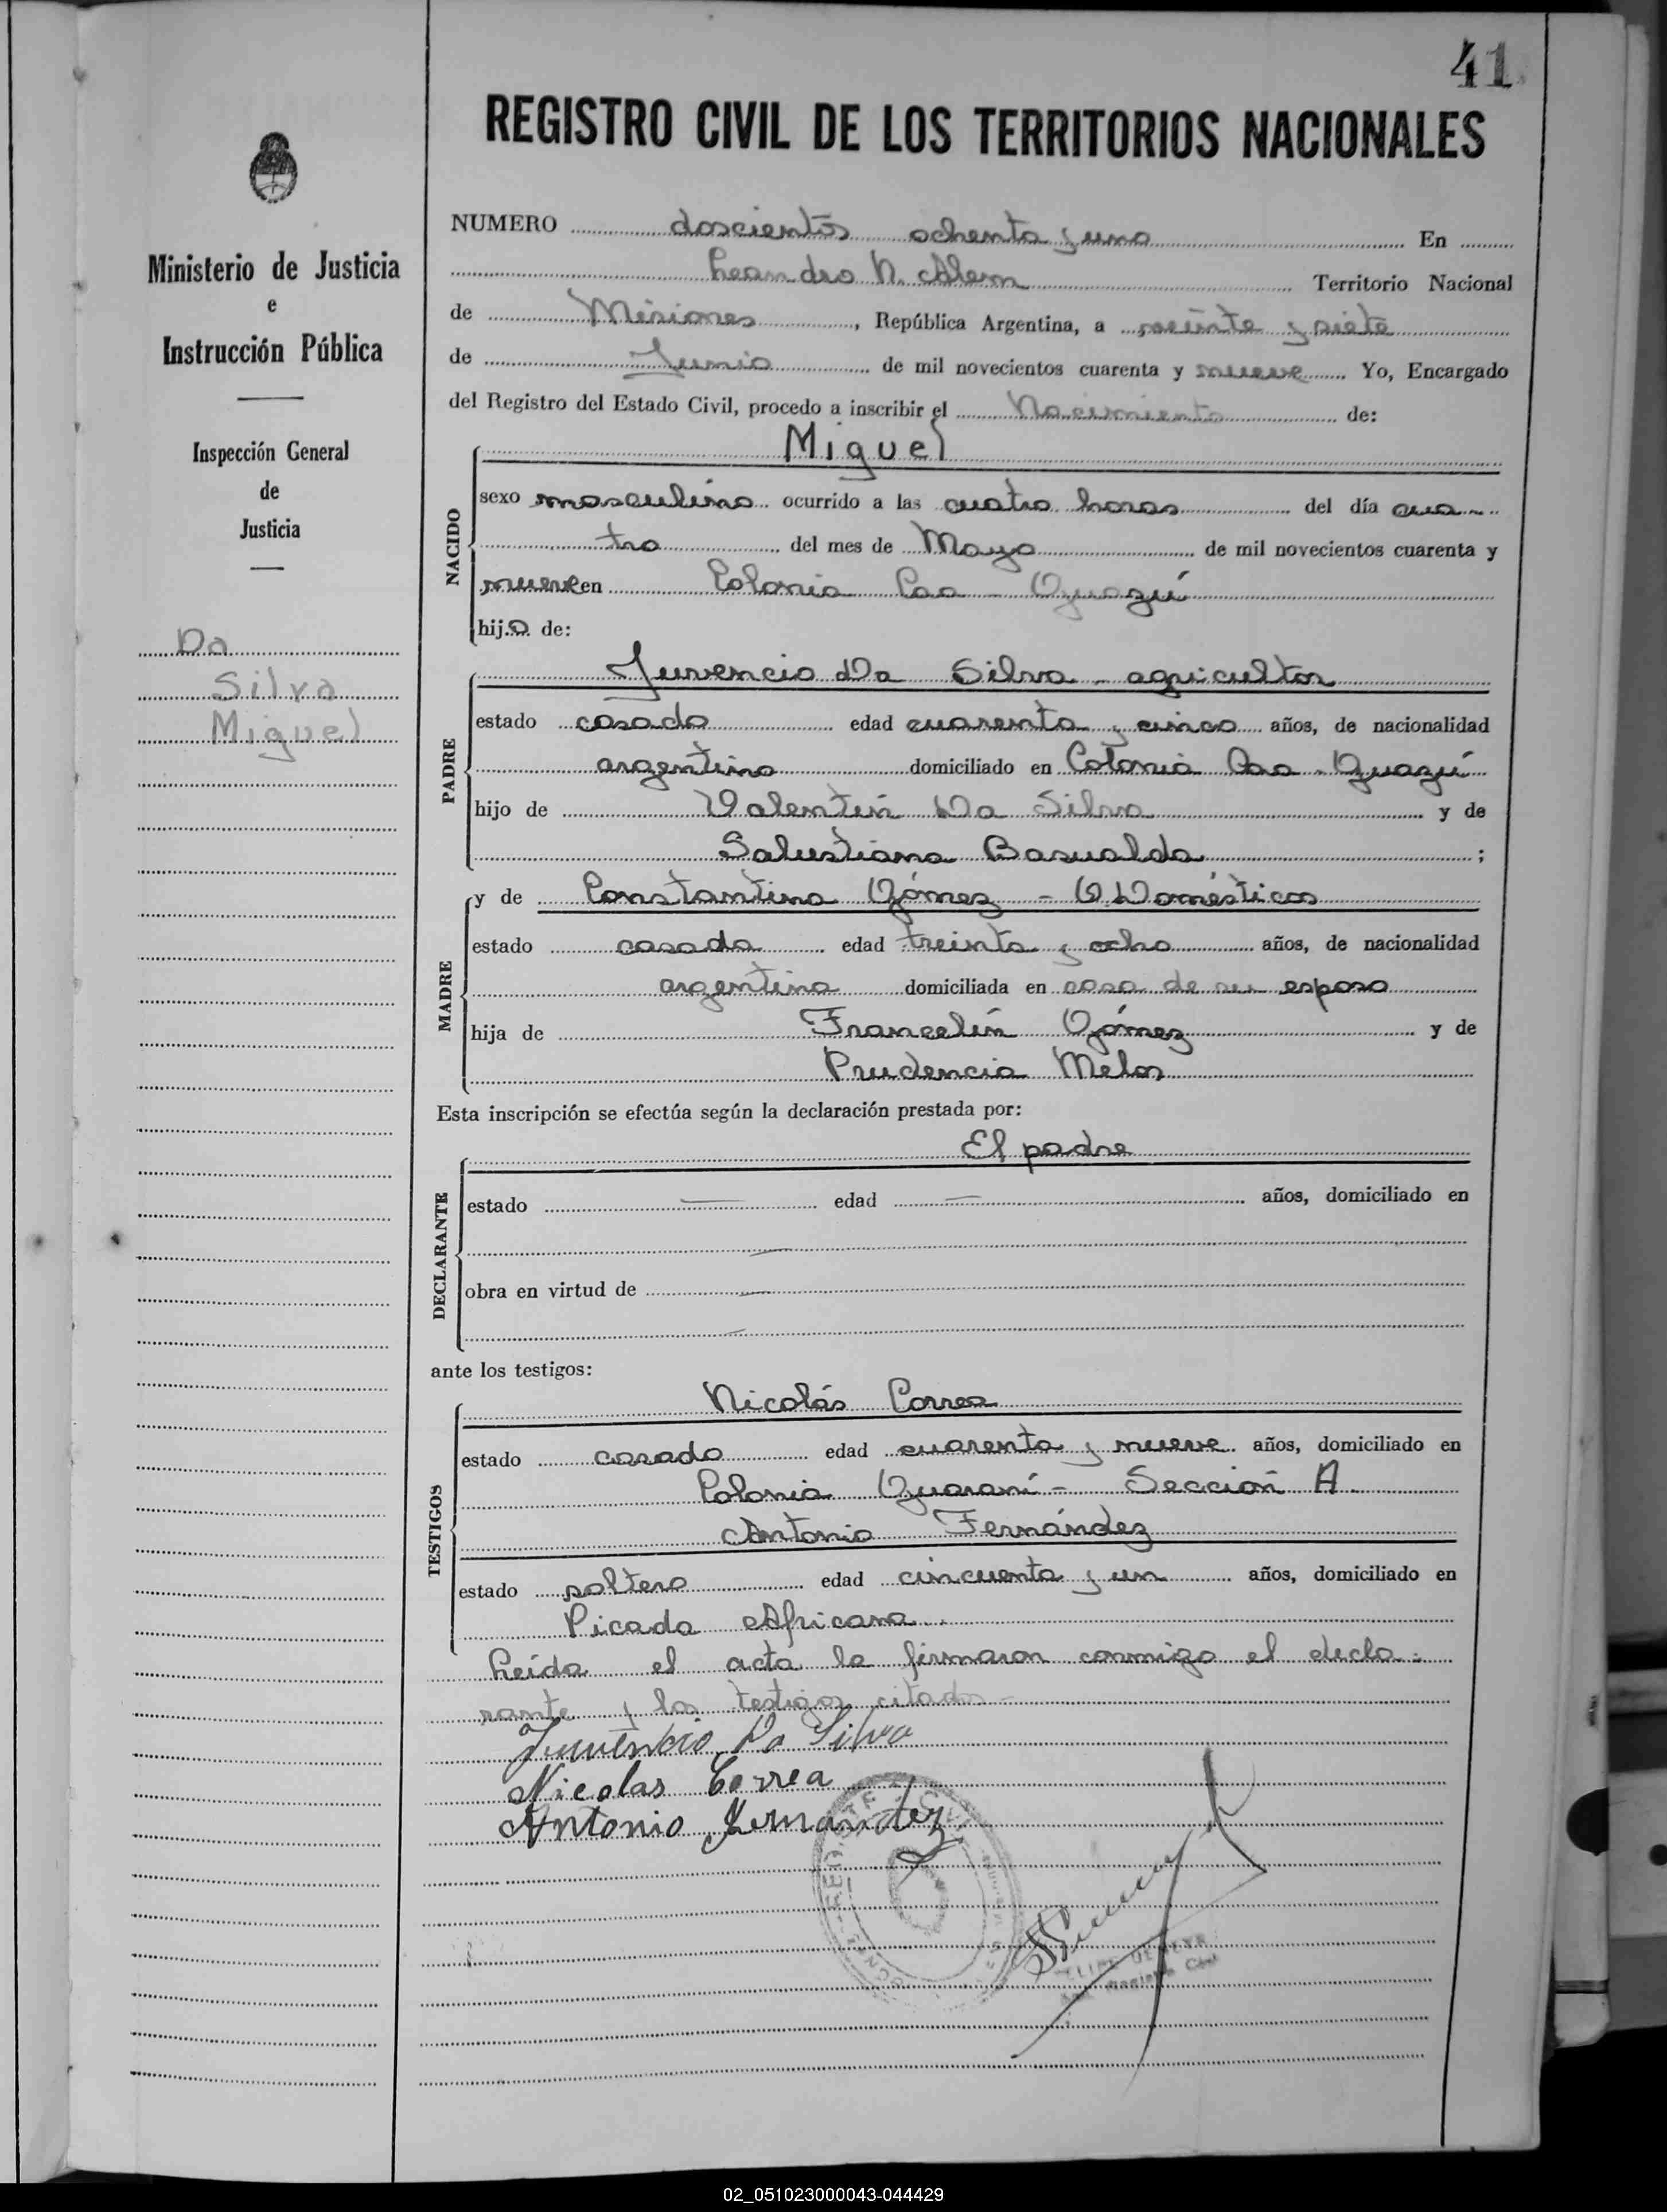 41
REGISTRO CIVIL DE LOS TERRITORIOS NACIONALES
Ministerio de Justicia
e
Instrucción Pública
Inspección General
de
Justicia
Da
Silva
Miguel
NUMERO doscientos ochenta y uno En
Leandro N. Alem Territorio Nacional
de Misiones, República Argentina, a veinte y siete
de Junio de mil novecientos cuarenta y nueve Yo, Encargado
del Registro del Estado Civil, procedo a inscribir el Nacimiento de:
NACIDO
Miguel
sexo masculino ocurrido a las cuatro horas del día cua-
tro del mes de Mayo de mil novecientos cuarenta y
nueve en Colonia Caa-Guazú
hijo de:
PADRE
Juvencio Da Silva - agricultor
estado casado edad cuarenta y cinco años, de nacionalidad
argentino domiciliado en Colonia Caa-Guazú
hijo de Valentín Da Silva y de
Salustiana Basualda ;
MADRE
y de Constantina Gómez - Q.Domésticos
estado casada edad treinta y ocho años, de nacionalidad
argentina domiciliada en casa de su esposo
hija de Francelín Gómez y de
Prudencia Melos
Esta inscripción se efectúa según la declaración prestada por:
DECLARANTE
El padre
estado edad años, domiciliado en
obra en virtud de
ante los testigos:
TESTIGOS
Nicolás Correa
estado casado edad cuarenta y nueve años, domiciliado en
Colonia Guaraní - Sección A.
Antonio Fernández
estado soltero edad cincuenta y un años, domiciliado en
Picada Africana.
Leída el acta la firmaron conmigo el decla-
rante y los testigos citados -
Juvencio Da Silva
Nicolas Correa
Antonio Fernandez
02_051023000043-044429